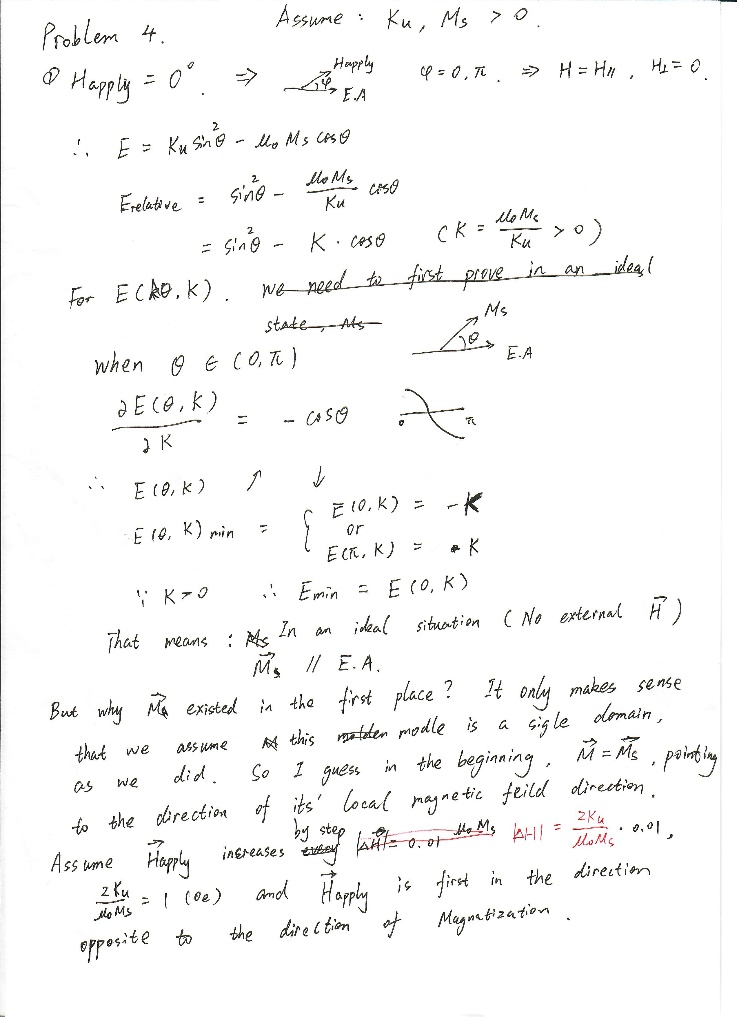 Problem 4. Assume : Ku, Ms > 0.
① Happly = 0°. ⇒ Happly φ E.A φ = 0, π. ⇒ H = H//, H⊥ = 0.
∴ E = Ku sin²θ - μ₀ Ms cosθ
Erelative = sin²θ - μ₀Ms/Ku cosθ
= sin²θ - K · cosθ (K = μ₀Ms/Ku > 0)
For E(θ, K). we need to first prove in an ideal
state, Ms
Ms θ E.A
when θ ∈ (0, π)
∂E(θ, K)/∂K = - cosθ 0 π
∴ E(θ, K) ↑ ↓
E(θ, K) min = { E(0, K) = -K
or
E(π, K) = K
∵ K > 0 ∴ Emin = E(0, K)
That means : Ms In an ideal situation (No external H⃗)
M⃗s // E.A.
But why M⃗s existed in the first place? It only makes sense
that we assume this modle is a sigle domain,
as we did. So I guess in the beginning, M⃗ = M⃗s, pointing
to the direction of its' local magnetic feild direction.
Assume H⃗apply increases by step every |ΔH| = 0.01 μ₀Ms |ΔH| = 2Ku/μ₀Ms · 0.01,
2Ku/μ₀Ms = 1 (Oe) and H⃗apply is first in the direction
opposite to the direction of Magnatization.